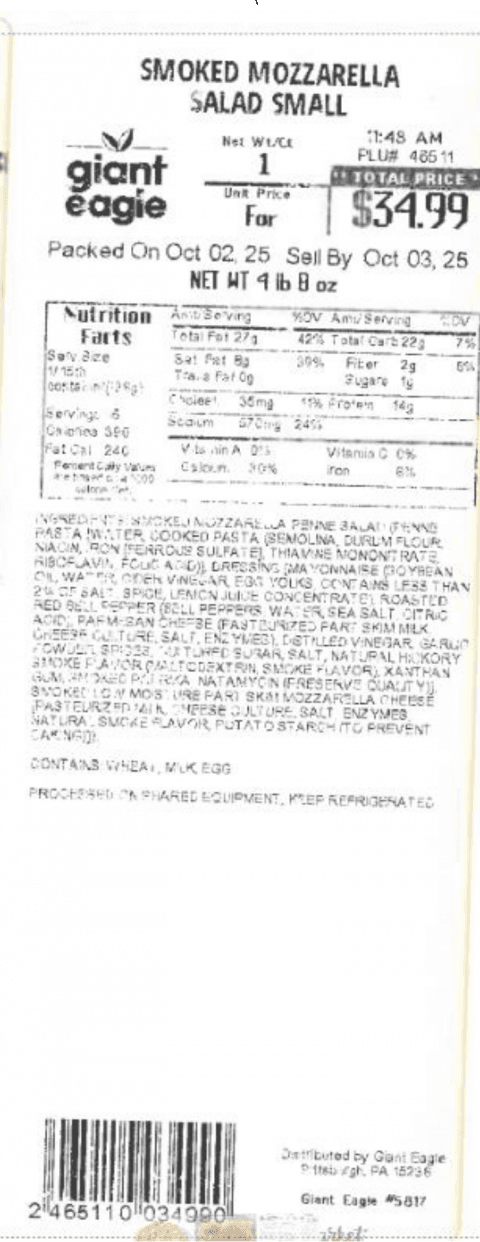 SMOKED MOZZARELLA
SALAD SMALL
giant
eagle
Net Wt/Ct
1
Unit Price
For
11:48 AM
PLU# 46511
** TOTAL PRICE *
$34.99
Packed On Oct 02, 25 Sell By Oct 03, 25
NET WT 4 lb 8 oz
Nutrition
Facts
Serv Size
1/15th
Servings 6
Calories 390
Fat Cal 240
Percent Daily Values
Amt/Serving %DV Amt/Serving %DV
Total Fat 27g 42% Total Carb 22g 7%
Sat Fat 8g 39% Fiber 2g
Trans Fat 0g Sugars 1g
Cholest 35mg 11% Protein 14g
Sodium 570mg 24%
Vitamin A 0% Vitamin C 0%
Calcium 30% Iron 6%
INGREDIENTS: SMOKED MOZZARELLA PENNE SALAD (PENNE
PASTA (WATER, COOKED PASTA (SEMOLINA, DURUM FLOUR,
NIACIN, IRON (FERROUS SULFATE), THIAMINE MONONITRATE,
RIBOFLAVIN, FOLIC ACID)), DRESSING (MAYONNAISE (SOYBEAN
OIL, WATER, CIDER VINEGAR, EGG YOLKS, CONTAINS LESS THAN
2% OF SALT, SPICE, LEMON JUICE CONCENTRATE), ROASTED
RED BELL PEPPER (BELL PEPPERS, WATER, SEA SALT, CITRIC
ACID), PARMESAN CHEESE (PASTEURIZED PART SKIM MILK,
CHEESE CULTURE, SALT, ENZYMES), DISTILLED VINEGAR, GARLIC
POWDER, SPICES, CULTURED SUGAR, SALT, NATURAL HICKORY
SMOKE FLAVOR (MALTODEXTRIN, SMOKE FLAVOR), XANTHAN
GUM, SMOKED PAPRIKA, NATAMYCIN (PRESERVE QUALITY)),
SMOKED LOW MOISTURE PART SKIM MOZZARELLA CHEESE
(PASTEURIZED MILK, CHEESE CULTURE, SALT, ENZYMES,
NATURAL SMOKE FLAVOR, POTATO STARCH (TO PREVENT
CAKING))).
CONTAINS: WHEAT, MILK, EGG
PROCESSED ON SHARED EQUIPMENT, KEEP REFRIGERATED
2 465110 034990
Distributed by Giant Eagle
Pittsburgh, PA 15238
Giant Eagle #5817